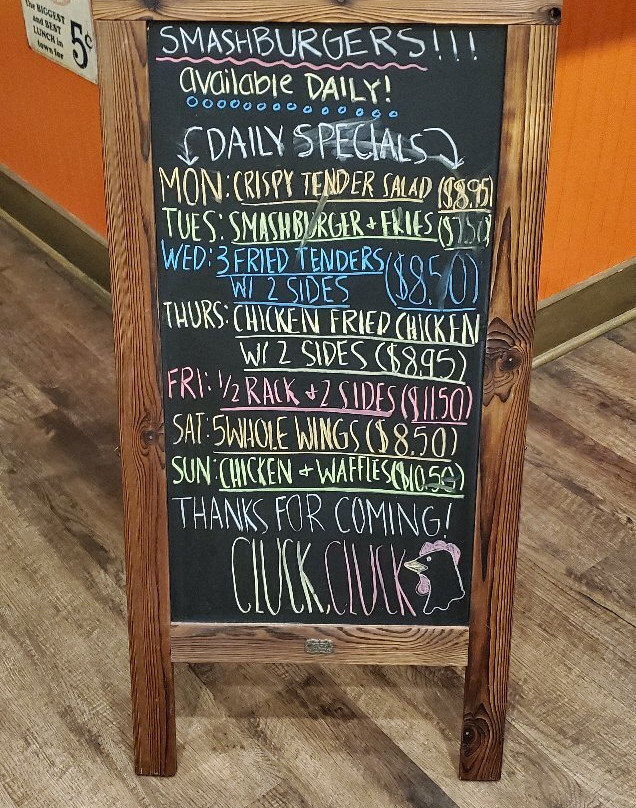 The BIGGEST
and BEST
LUNCH in
town for
5¢
SMASHBURGERS!!!
available DAILY!
DAILY SPECIALS
MON: CRISPY TENDER SALAD ($8.95)
TUES: SMASHBURGER + FRIES ($7.50)
WED: 3 FRIED TENDERS
W/ 2 SIDES ($8.50)
THURS: CHICKEN FRIED CHICKEN
W/ 2 SIDES ($8.95)
FRI: 1/2 RACK + 2 SIDES ($11.50)
SAT: 5 WHOLE WINGS ($8.50)
SUN: CHICKEN + WAFFLES ($10.50)
THANKS FOR COMING!
CLUCK, CLUCK